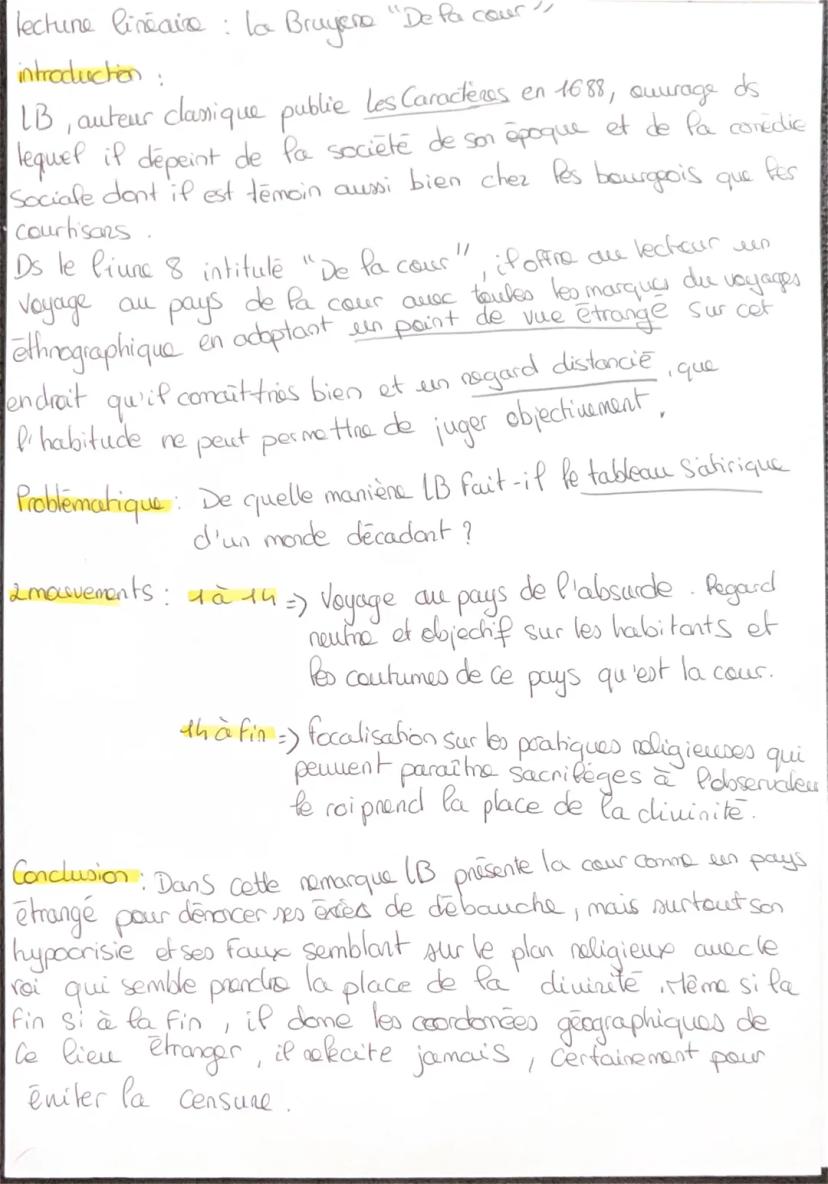 lecture linéaire : la Bruyere "De la cour"
introduction :
LB, auteur classique publie les Caractères en 1688, ouvrage ds
lequel il dépeint de la société de son époque et de la comédie
Sociale dont il est témoin aussi bien chez les bourgeois que les
courtisans.
Ds le livre 8 intitulé "De la cour", il offre au lecteur un
voyage au pays de la cour avec toutes les marques du voyages
éthnographique en adoptant un point de vue étrangé sur cet
endroit qu'il connaît très bien et un regard distancié, que
l'habitude ne peut permettre de juger objectivement.
Problématique : De quelle manière LB fait-il le tableau satirique
d'un monde décadant ?
2 mouvements : 1 à 14 => Voyage au pays de l'absurde. Regard
neutre et objectif sur les habitants et
les coutumes de ce pays qu'est la cour.
14 à fin => focalisation sur les pratiques religieuses qui
peuvent paraître sacrilèges à l'observateu
le roi prend la place de la divinité.
Conclusion : Dans cette remarque LB présente la cour comme un pays
étrangé pour dénoncer ses excès de débauche, mais surtout son
hypocrisie et ses faux semblant sur le plan religieux avec le
roi qui semble prendre la place de la divinité. Même si la
fin si à la fin, il donne les coordonnées géographiques de
ce lieu étranger, il le cite jamais, certainement pour
éviter la censure.